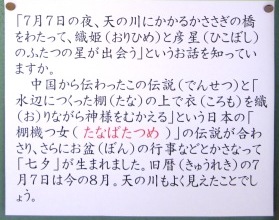 「7月7日の夜、天の川にかかるかささぎの橋
をわたって、織姫(おりひめ)と彦星(ひこぼし)
のふたつの星が出会う」というお話を知ってい
ますか。
中国から伝わったこの伝説(でんせつ)と「
水辺につくった棚(たな)の上で衣(ころも)を織
(お)りながら神様をむかえる」という日本の「
棚機つ女(たなばたつめ)」の伝説が合わ
さり、さらにお盆(ぼん)の行事などとかさなって
「七夕」が生まれました。旧暦(きゅうれき)の7
月7日は今の8月。天の川もよく見えたことでし
ょう。